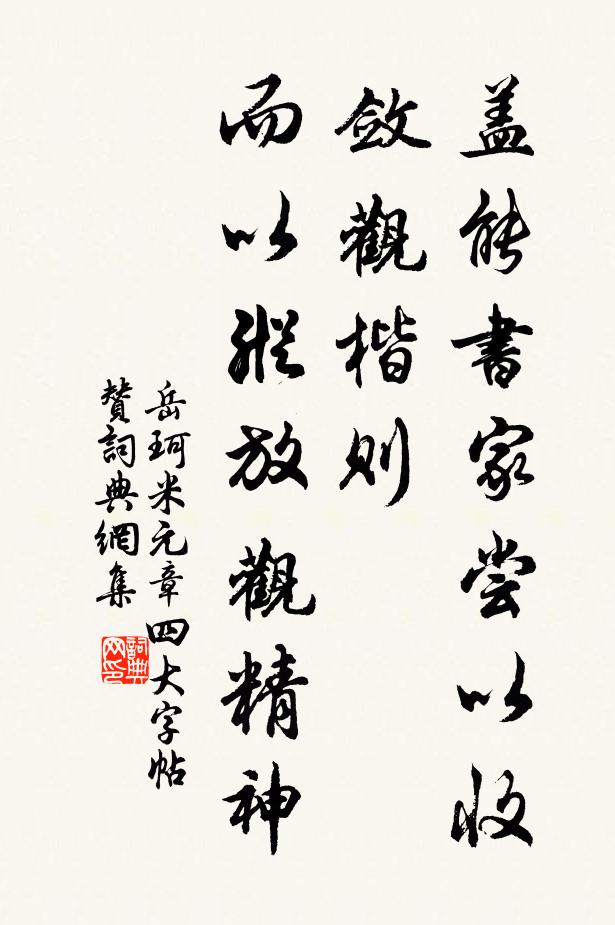 盖能書家尝以收
斂觀楷则
而以縱放觀精神
岳珂米元章四大字帖
贊詞典網集
詞典网印